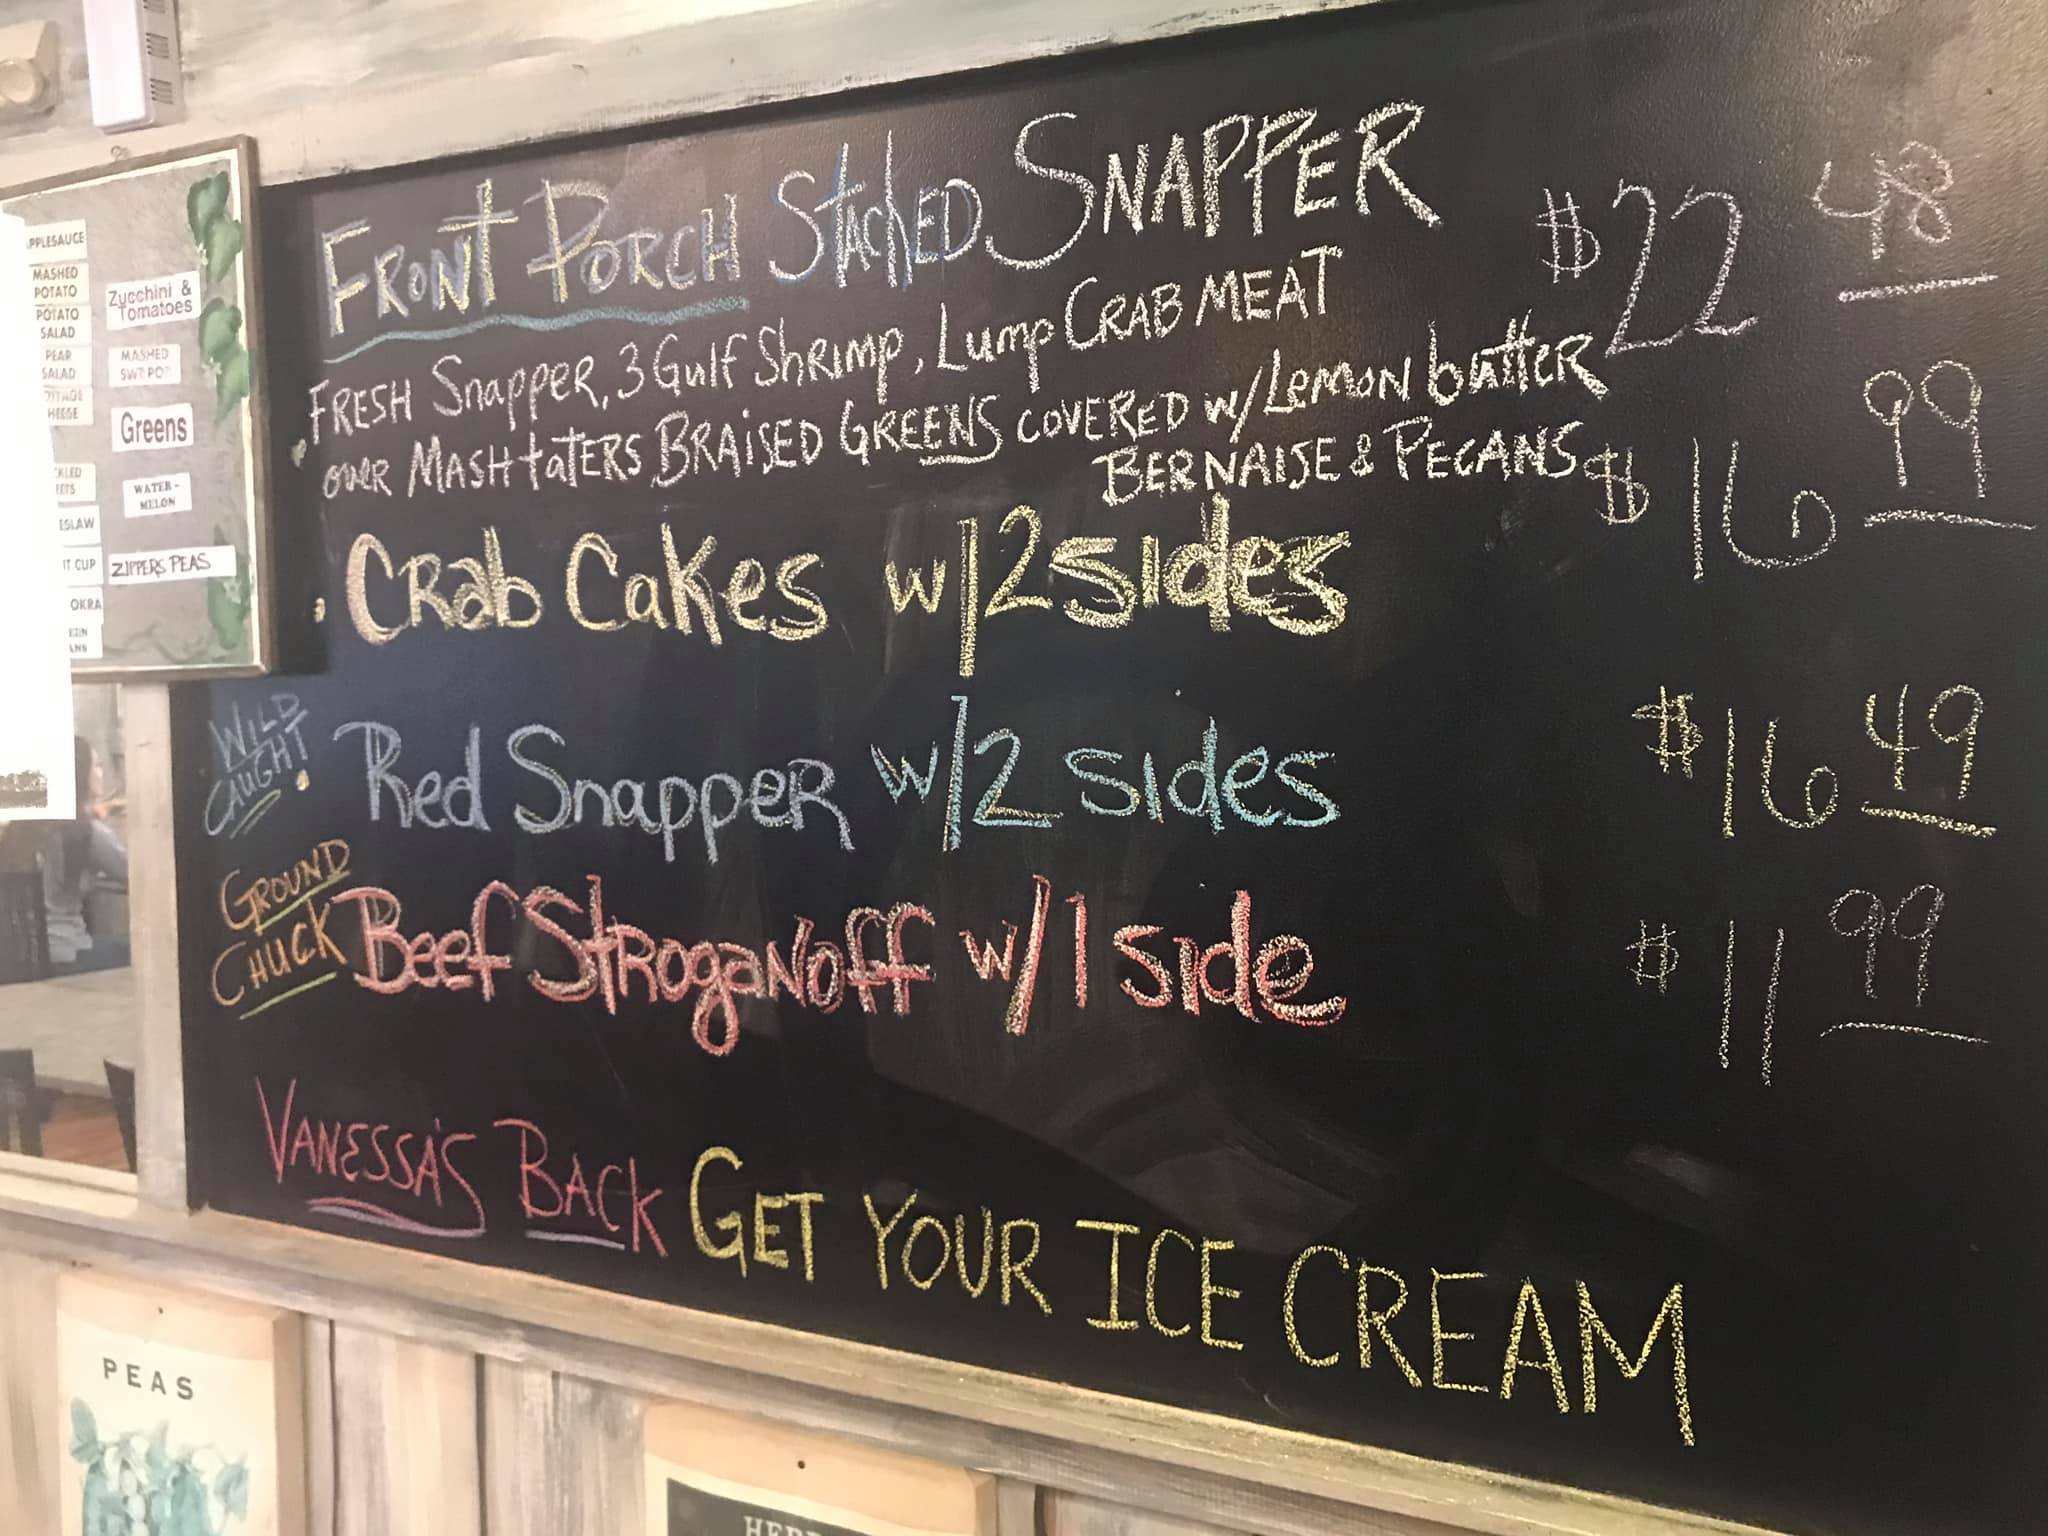 FRONT PORCH STACKED SNAPPER $22 48
FRESH Snapper, 3 Gulf Shrimp, Lump CRAB MEAT
over MASH taters BRAISED GREENS covered w/ Lemon butter
BERNAISE & PECANS $16 99
Crab Cakes w/2 sides
WILD
CAUGHT!
Red Snapper w/2 sides $16 49
GROUND
CHUCK
Beef Stroganoff w/1 side $11 99
VANESSA'S BACK GET YOUR ICE CREAM
PPLESAUCE
MASHED
POTATO
POTATO
SALAD
PEAR
SALAD
OTTAGE
HEESE
CKLED
EETS
ESLAW
IT CUP
OKRA
Zucchini &
Tomatoes
MASHED
SWT POT
Greens
WATER-
MELON
ZIPPERS PEAS
PEAS